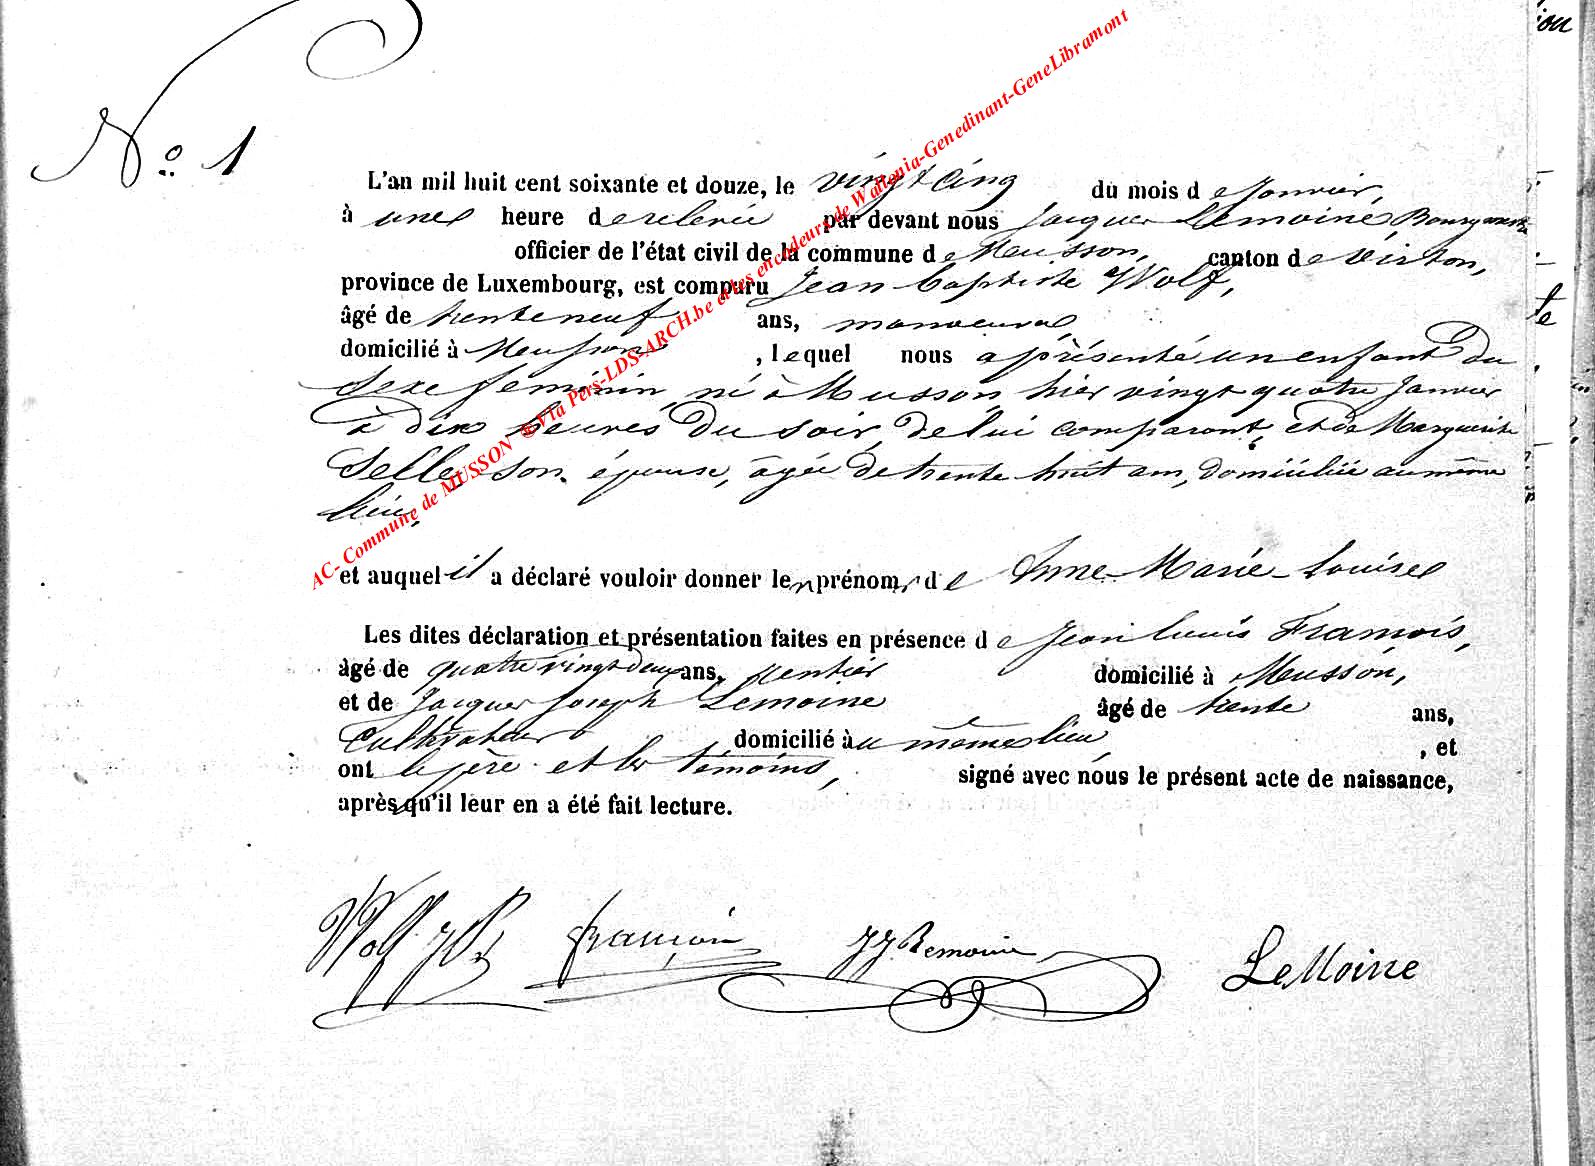 ion
No. 1
L'an mil huit cent soixante et douze, le vingt cinq du mois de Janvier,
à une heure de relevée par devant nous Jacques Lemoine, Bourgmestre
officier de l'état civil de la commune de Musson, canton de Virton,
province de Luxembourg, est comparu Jean Baptiste Wolf,
âgé de trente neuf ans, manoeuvre
domicilié à Musson, lequel nous a présenté un enfant du
te
sexe feminin, né à Musson, hier vingt quatre Janvier
à dix heures du soir, de lui comparant, et de Marguerite
Selle, son épouse, âgée de trente huit ans, domiciliée au même
lieu,
et auquel il a déclaré vouloir donner les prénoms de Anne-Marie-Louise
Les dites déclaration et présentation faites en présence de Jean Louis François,
âgé de quatre vingt deux ans, rentier domicilié à Musson,
et de Jacques Joseph Lemoine âgé de trente ans,
Cultivateur domicilié au même lieu, , et
ont le père et les témoins, signé avec nous le présent acte de naissance,
après qu'il leur en a été fait lecture.
Wolf J B François JJ Lemoine LeMoine
AC- Commune de MUSSON ® Via Pers-LDS-ARCH.be et les encodeurs de Wallonia-Genedinant-GeneLibramont